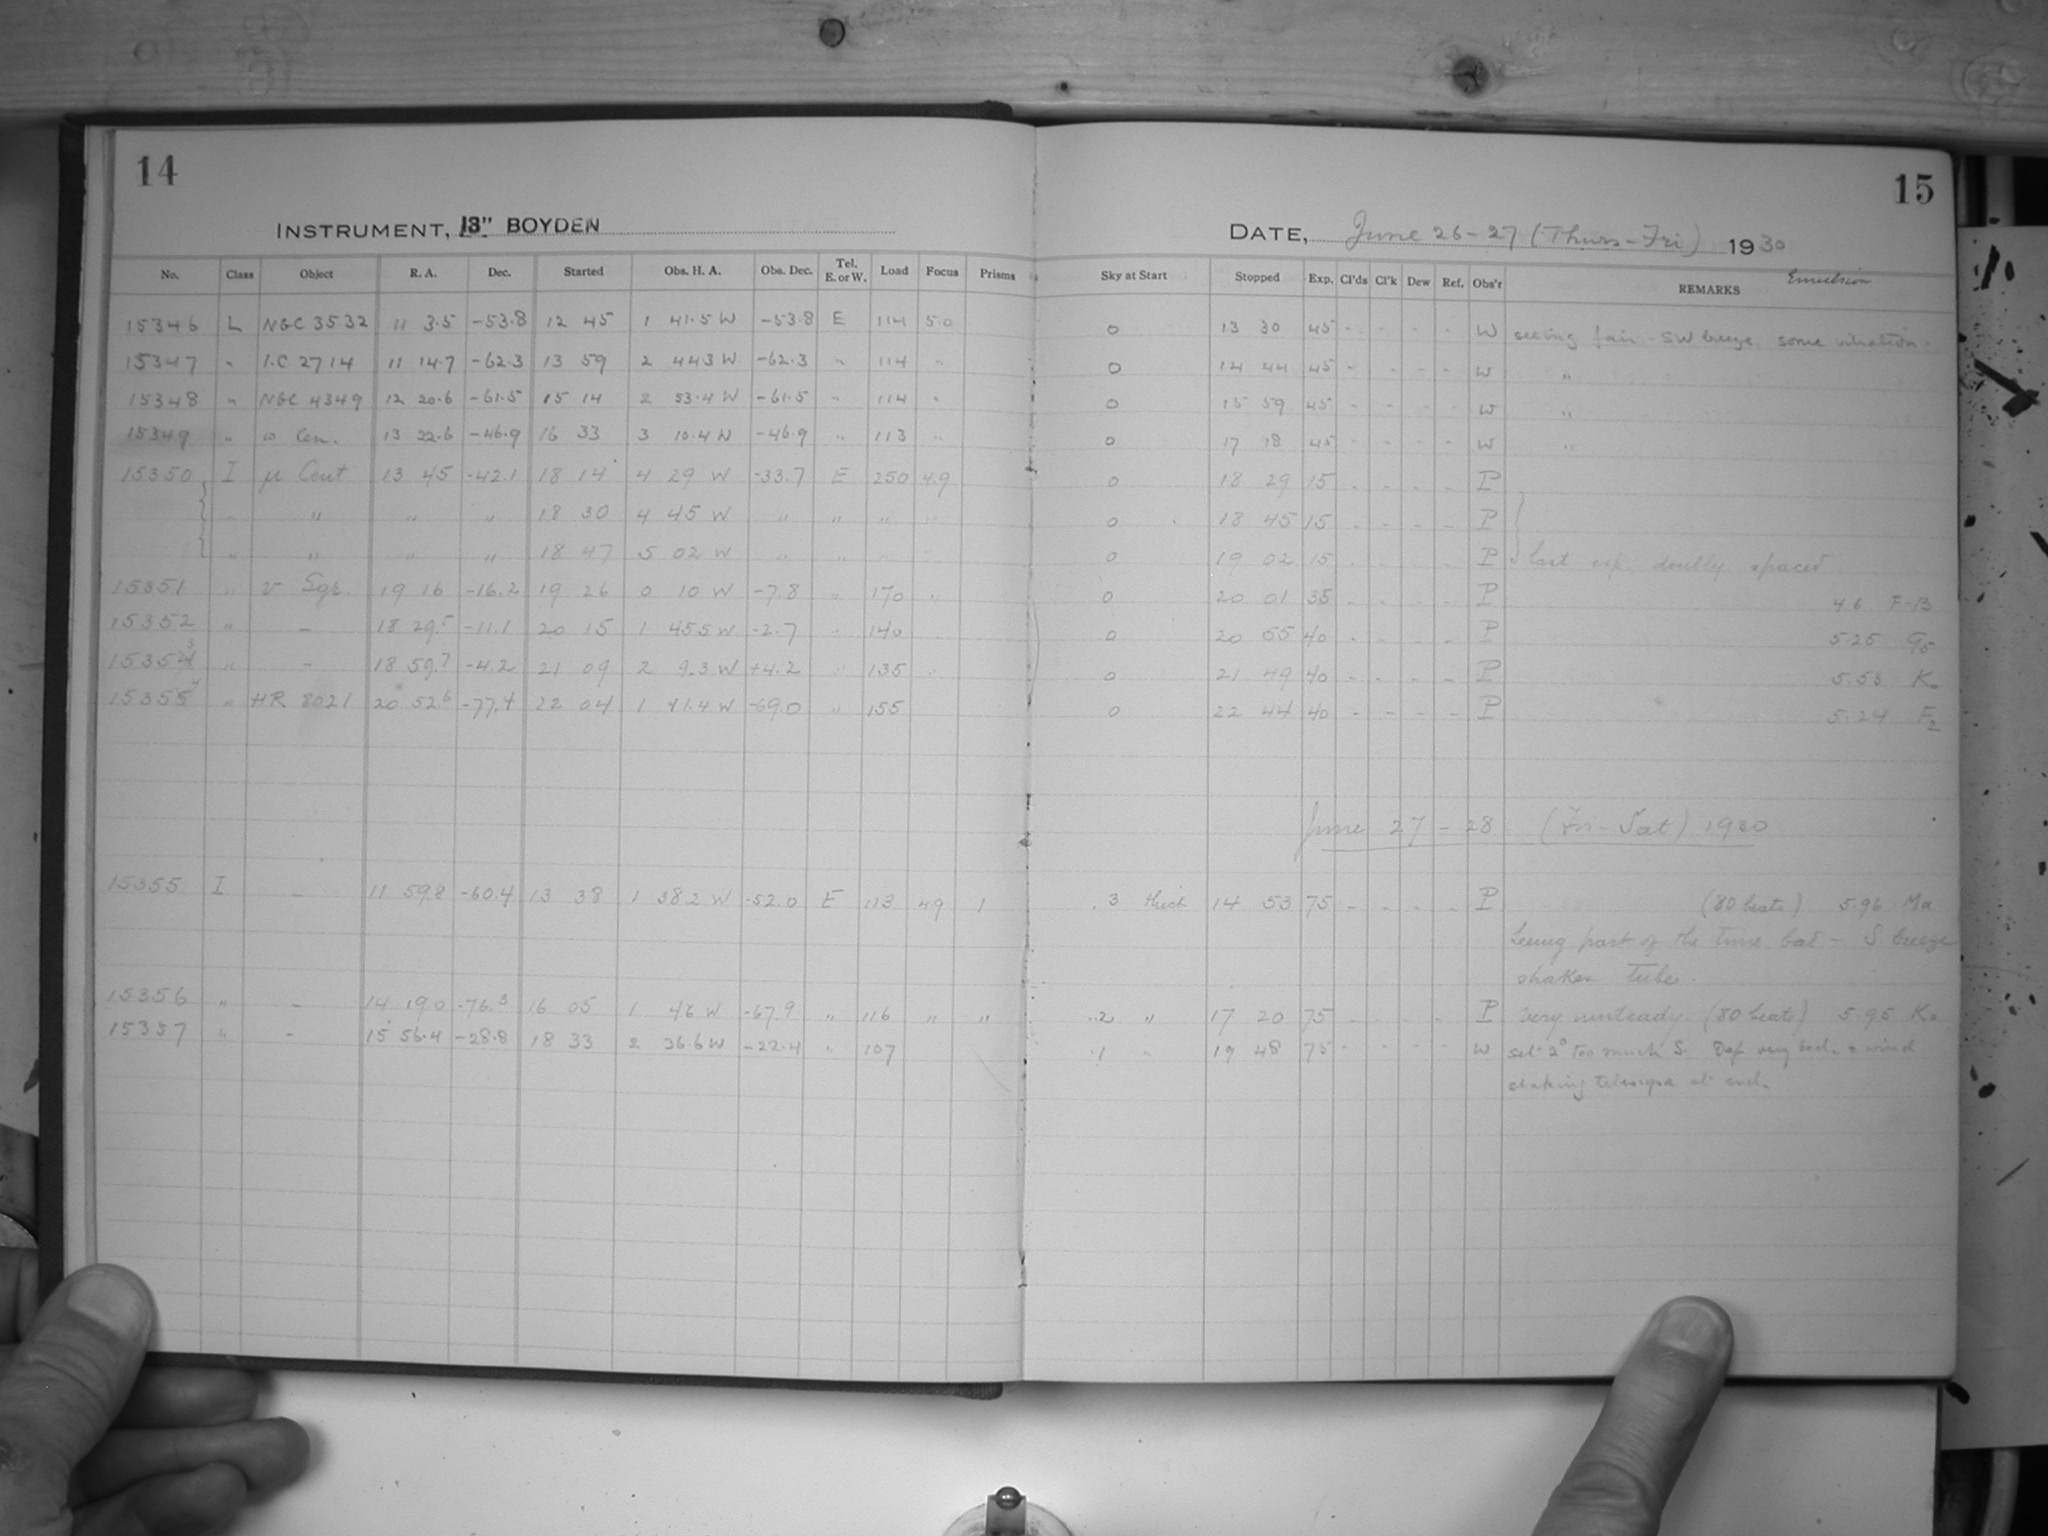 14
15
INSTRUMENT, 13" BOYDEN
DATE, June 26-27 (Thurs-Fri) 1930
No. Class Object R. A. Dec. Started Obs. H. A. Obs. Dec. Tel. E. or W. Load Focus Prisms Sky at Start Stopped Exp. Cl'ds Cl'k Dew Ref. Obs'r REMARKS Emulsion
15346 L NGC 3532 11 3.5 -53.8 12 45 1 41.5 W -53.8 E 114 5.0 0 13 30 45 - - - - W seeing fair - SW breeze some vibration.
15347 " I.C 2714 11 14.7 -62.3 13 59 2 44.3 W -62.3 " 114 " 0 14 44 45 - - - - W "
15348 " NGC 4349 12 20.6 -61.5 15 14 2 53.4 W -61.5 " 114 " 0 15 59 45 - - - - W "
15349 " ω Cen. 13 22.6 -46.9 16 33 3 10.4 W -46.9 " 113 " 0 17 18 45 - - - - W "
15350 I μ Cent 13 45 -42.1 18 14 4 29 W -33.7 E 250 4.9 0 18 29 15 - - - - P
" " " 18 30 4 45 W " " " " 0 18 45 15 - - - - P
" " " " 18 47 5 02 W " " " " 0 19 02 15 - - - - P last exp. doubly spaced
15351 " v Sgr. 19 16 -16.2 19 26 0 10 W -7.8 " 170 " 0 20 01 35 - - - - P 4.6 F-B
15352 " - 18 29.5 -11.1 20 15 1 45.5 W -2.7 " 140 0 20 55 40 - - - - P 5.25 G5
15353 " - 18 59.7 -4.2 21 09 2 9.3 W +4.2 " 135 " 0 21 49 40 - - - - P 5.53 K0
15354 " HR 8021 20 52.6 -77.4 22 04 1 41.4 W -69.0 " 155 0 22 44 40 - - - - P 5.24 F2
June 27-28 (Fri-Sat) 1930
15355 I - 11 59.8 -60.4 13 38 1 38.2 W -52.0 E 113 49 1 .3 thick 14 53 75 - - - - P (80 beats) 5.96 Ma
Seeing part of the time bad - S breeze
shakes tube.
15356 " - 14 19.0 -76.3 16 05 1 46 W -67.9 " 116 " " .2 " 17 20 75 - - - - P Very unsteady (80 beats) 5.95 K0
15357 " - 15 56.4 -28.8 18 33 2 36.6 W -22.4 " 107 .1 " 19 48 75 - - - - W set 2° too much S. Def very bad. & wind
shaking telescope at end.